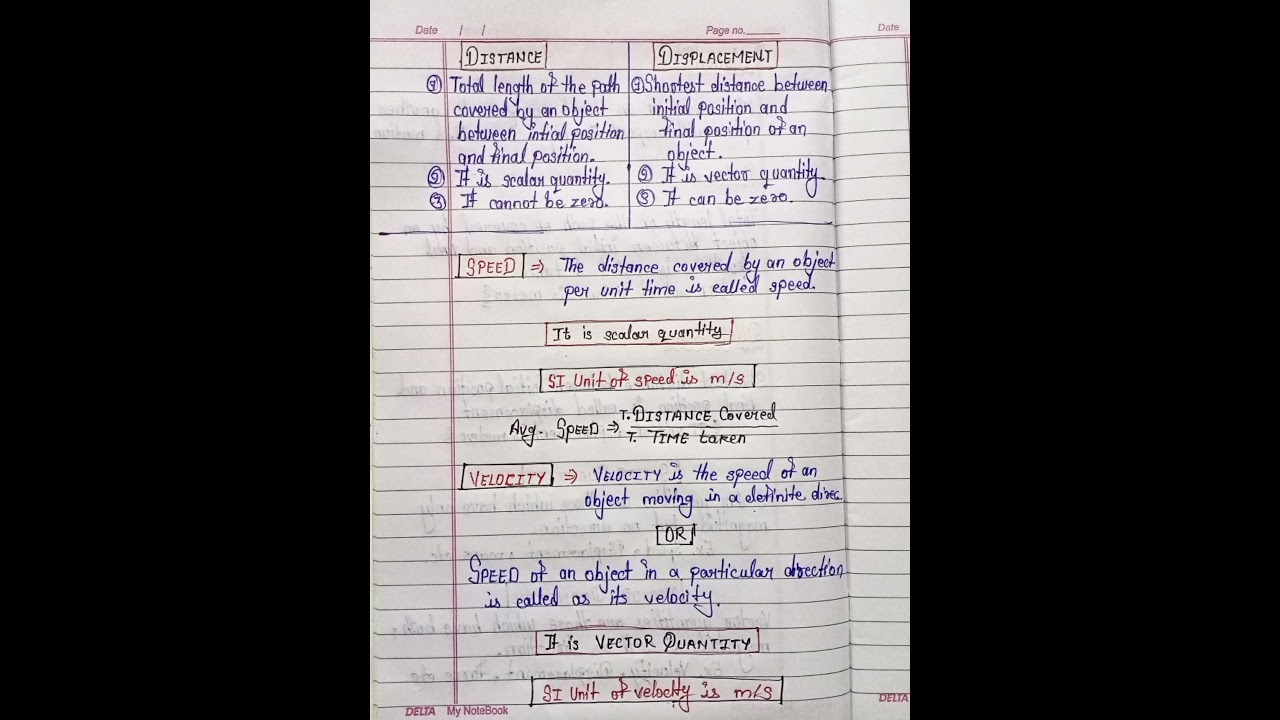 Date / / Page no.
Date
DISTANCE
① Total length of the path
covered by an object
between intial position
and final position.
② It is scalar quantity.
③ It cannot be zero.
DISPLACEMENT
① Shortest distance between
initial position and
final position of an
object.
② It is vector quantity
③ It can be zero.
SPEED ⇒ The distance covered by an object
per unit time is called speed.
It is scalar quantity
SI Unit of speed is m/s
Avg. SPEED ⇒ T. DISTANCE Covered
T. TIME taken
VELOCITY ⇒ VELOCITY is the speed of an
object moving in a definite direc.
OR
SPEED of an object in a particular direction
is called as its velocity.
It is VECTOR QUANTITY
SI Unit of velocity is m/s
DELTA My NoteBook
DELTA